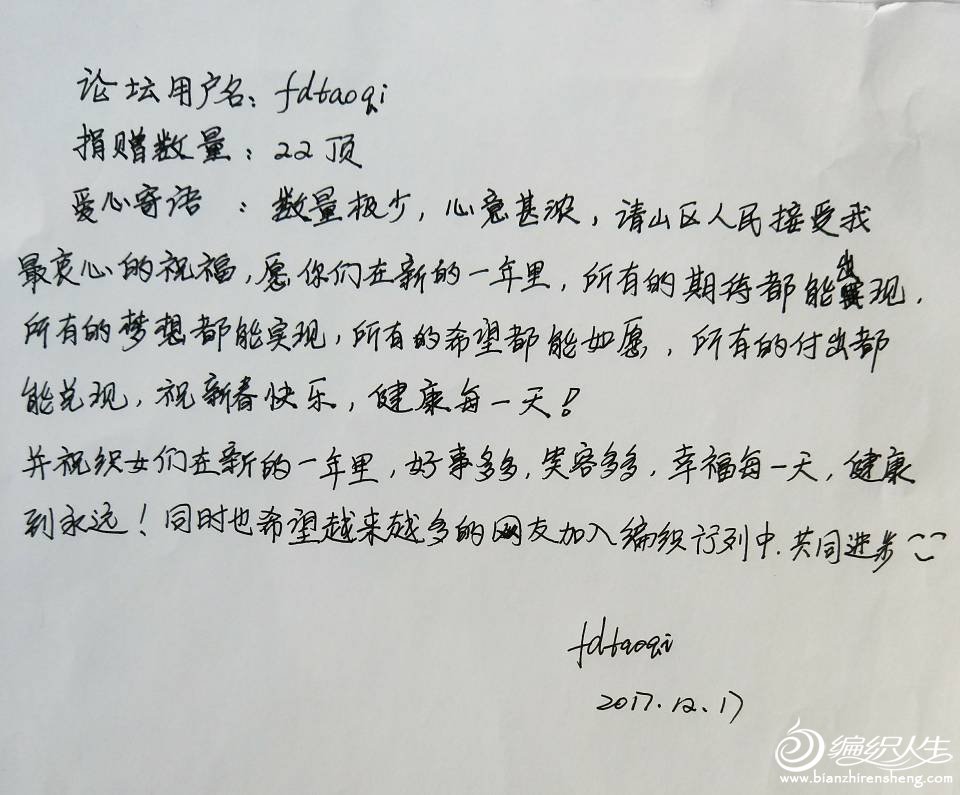 论坛用户名：fdtaoqi
捐赠数量：22顶
爱心寄语：数量极少，心意甚浓，请山区人民接受我
最衷心的祝福，愿你们在新的一年里，所有的期待都能出现，
所有的梦想都能实现，所有的希望都能如愿，所有的付出都
能兑现，祝新春快乐，健康每一天！
并祝织女们在新的一年里，好事多多，笑容多多，幸福每一天，健康
到永远！同时也希望越来越多的网友加入编织行列中.共同进步
fdtaoqi
2017.12.17
编织人生
www.bianzhirensheng.com